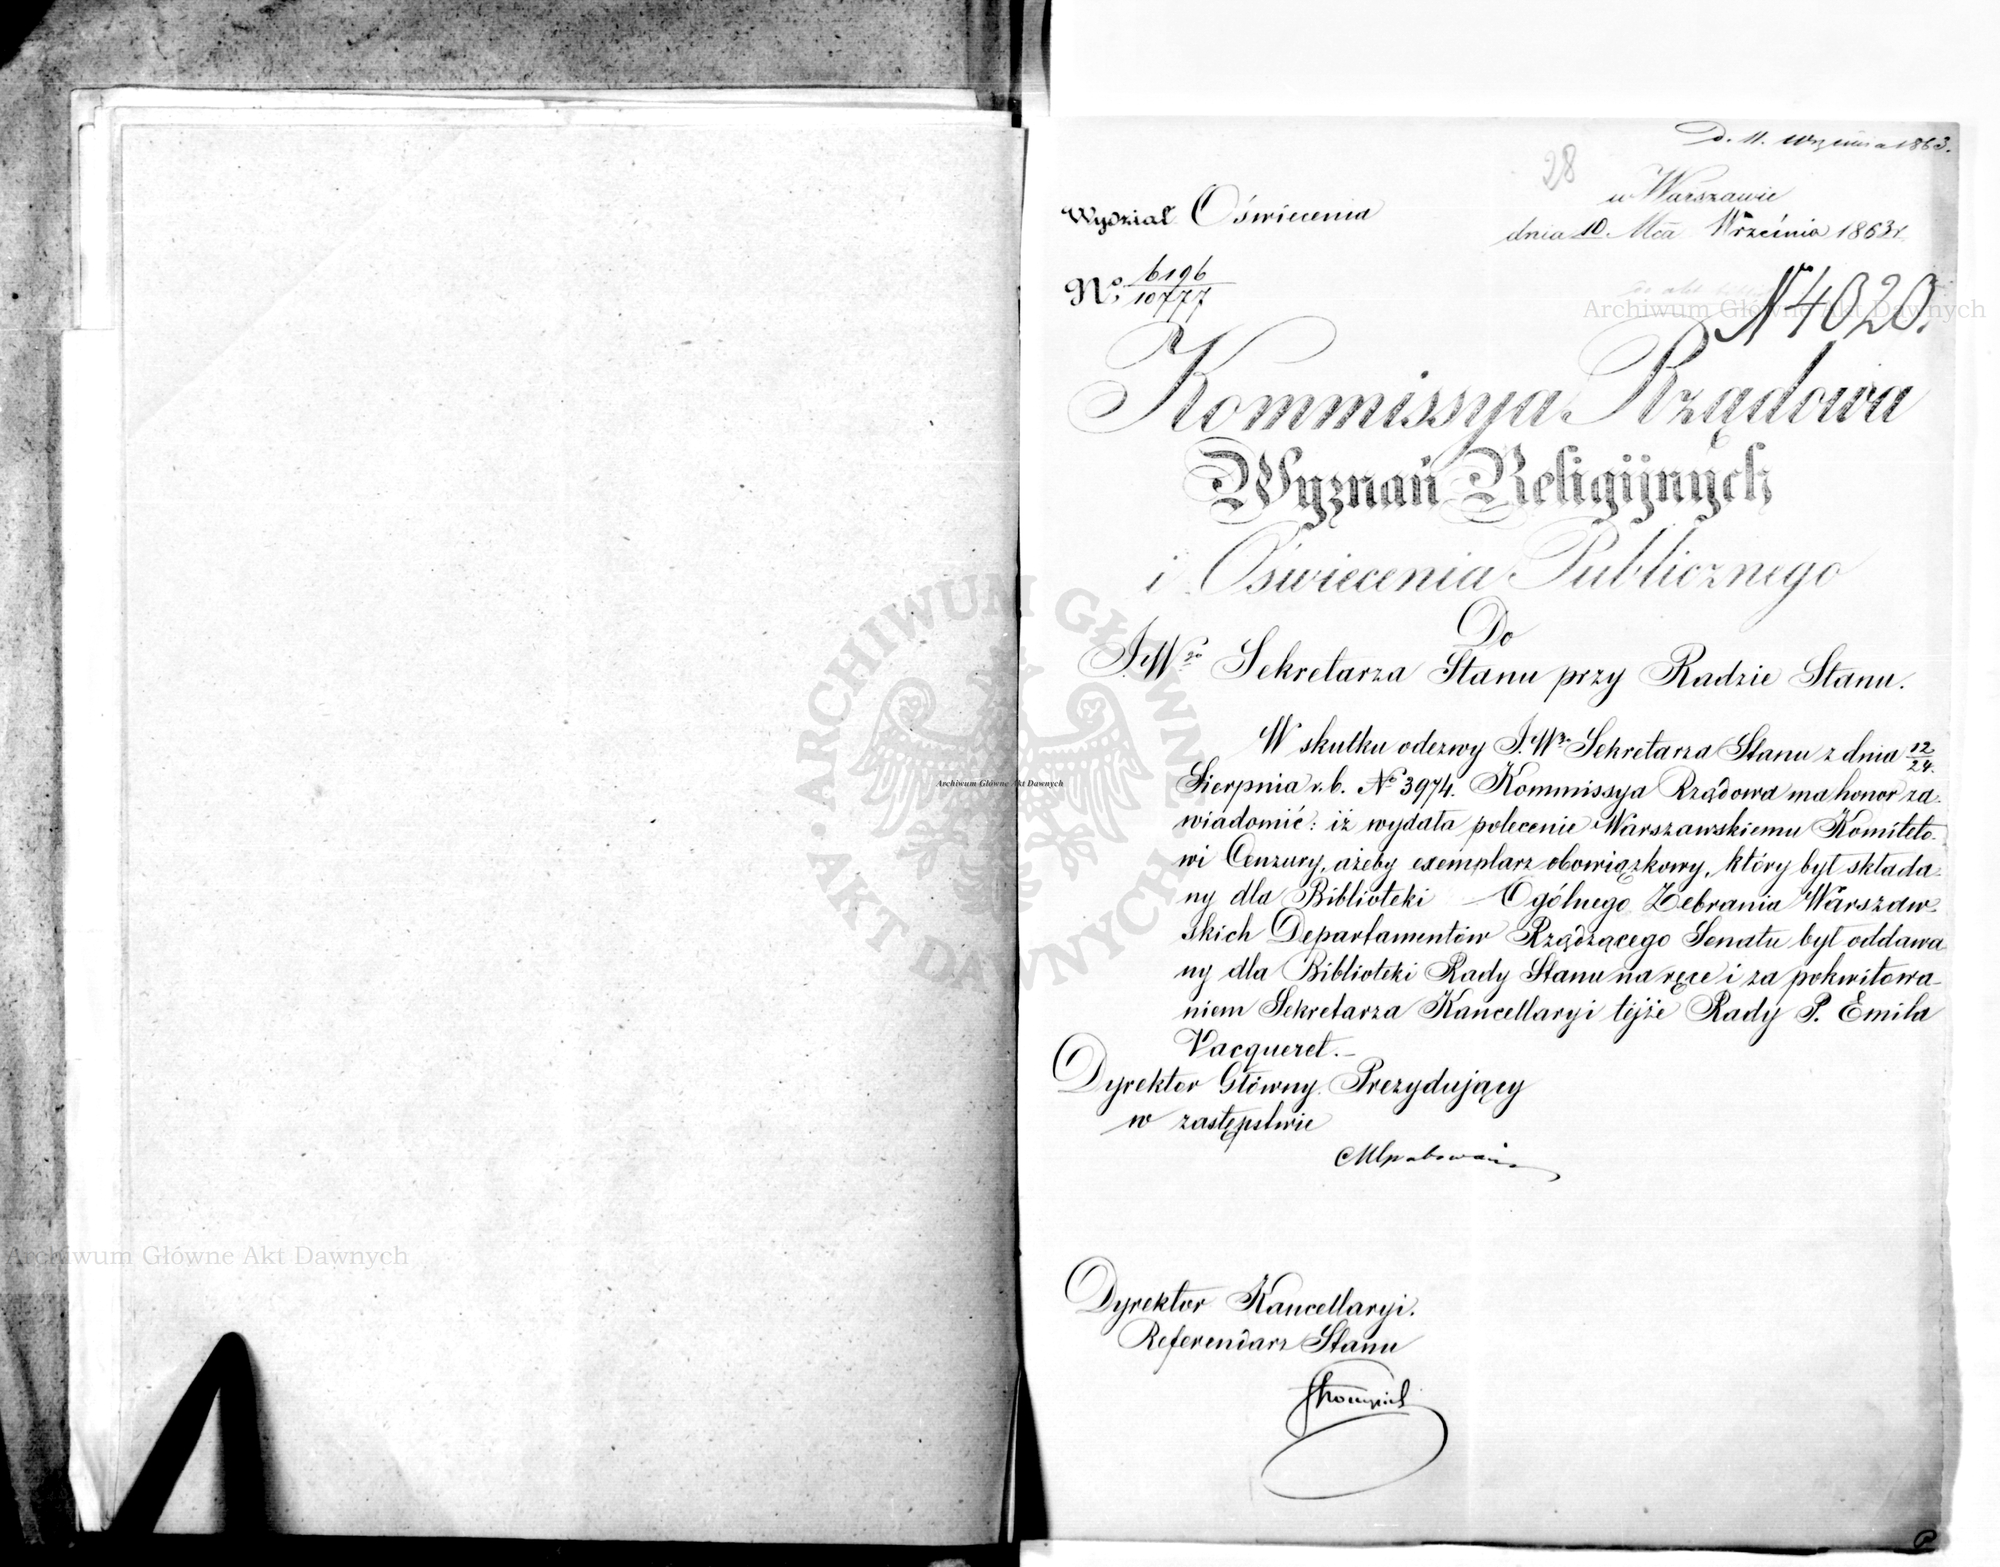 D. 11. Września 1863.
28
w Warszawie
Wydział Oświecenia
dnia 10. Mca Września 1863 r.
No. 6196/10777
N 4020.
Kommissya Rządowa
Wyznań Religijnych
i Oświecenia Publicznego
Do
J.Wgo Sekretarza Stanu przy Radzie Stanu.
W skutku odezwy J.Wgo Sekretarza Stanu z dnia 12/24.
Sierpnia r.b. No 3974. Kommissya Rządowa ma honor za-
wiadomić: iż wydała polecenie Warszawskiemu Komiteto-
wi Cenzury, ażeby exemplarz obowiązkowy, który był składa-
ny dla Biblioteki Ogólnego Zebrania Warszaw-
skich Departamentów Rządzącego Senatu był oddawa-
ny dla Biblioteki Rady Stanu na ręce i za pokwitowa-
niem Sekretarza Kancellaryi tejże Rady P. Emila
Vacqueret.
Dyrektor Główny Prezydujący
w zastępstwie
Dyrektor Kancellaryi.
Referendarz Stanu
Archiwum Główne Akt Dawnych
ARCHIWUM GŁÓWNE AKT DAWNYCH
Archiwum Główne Akt Dawnych
Archiwum Główne Akt Dawnych